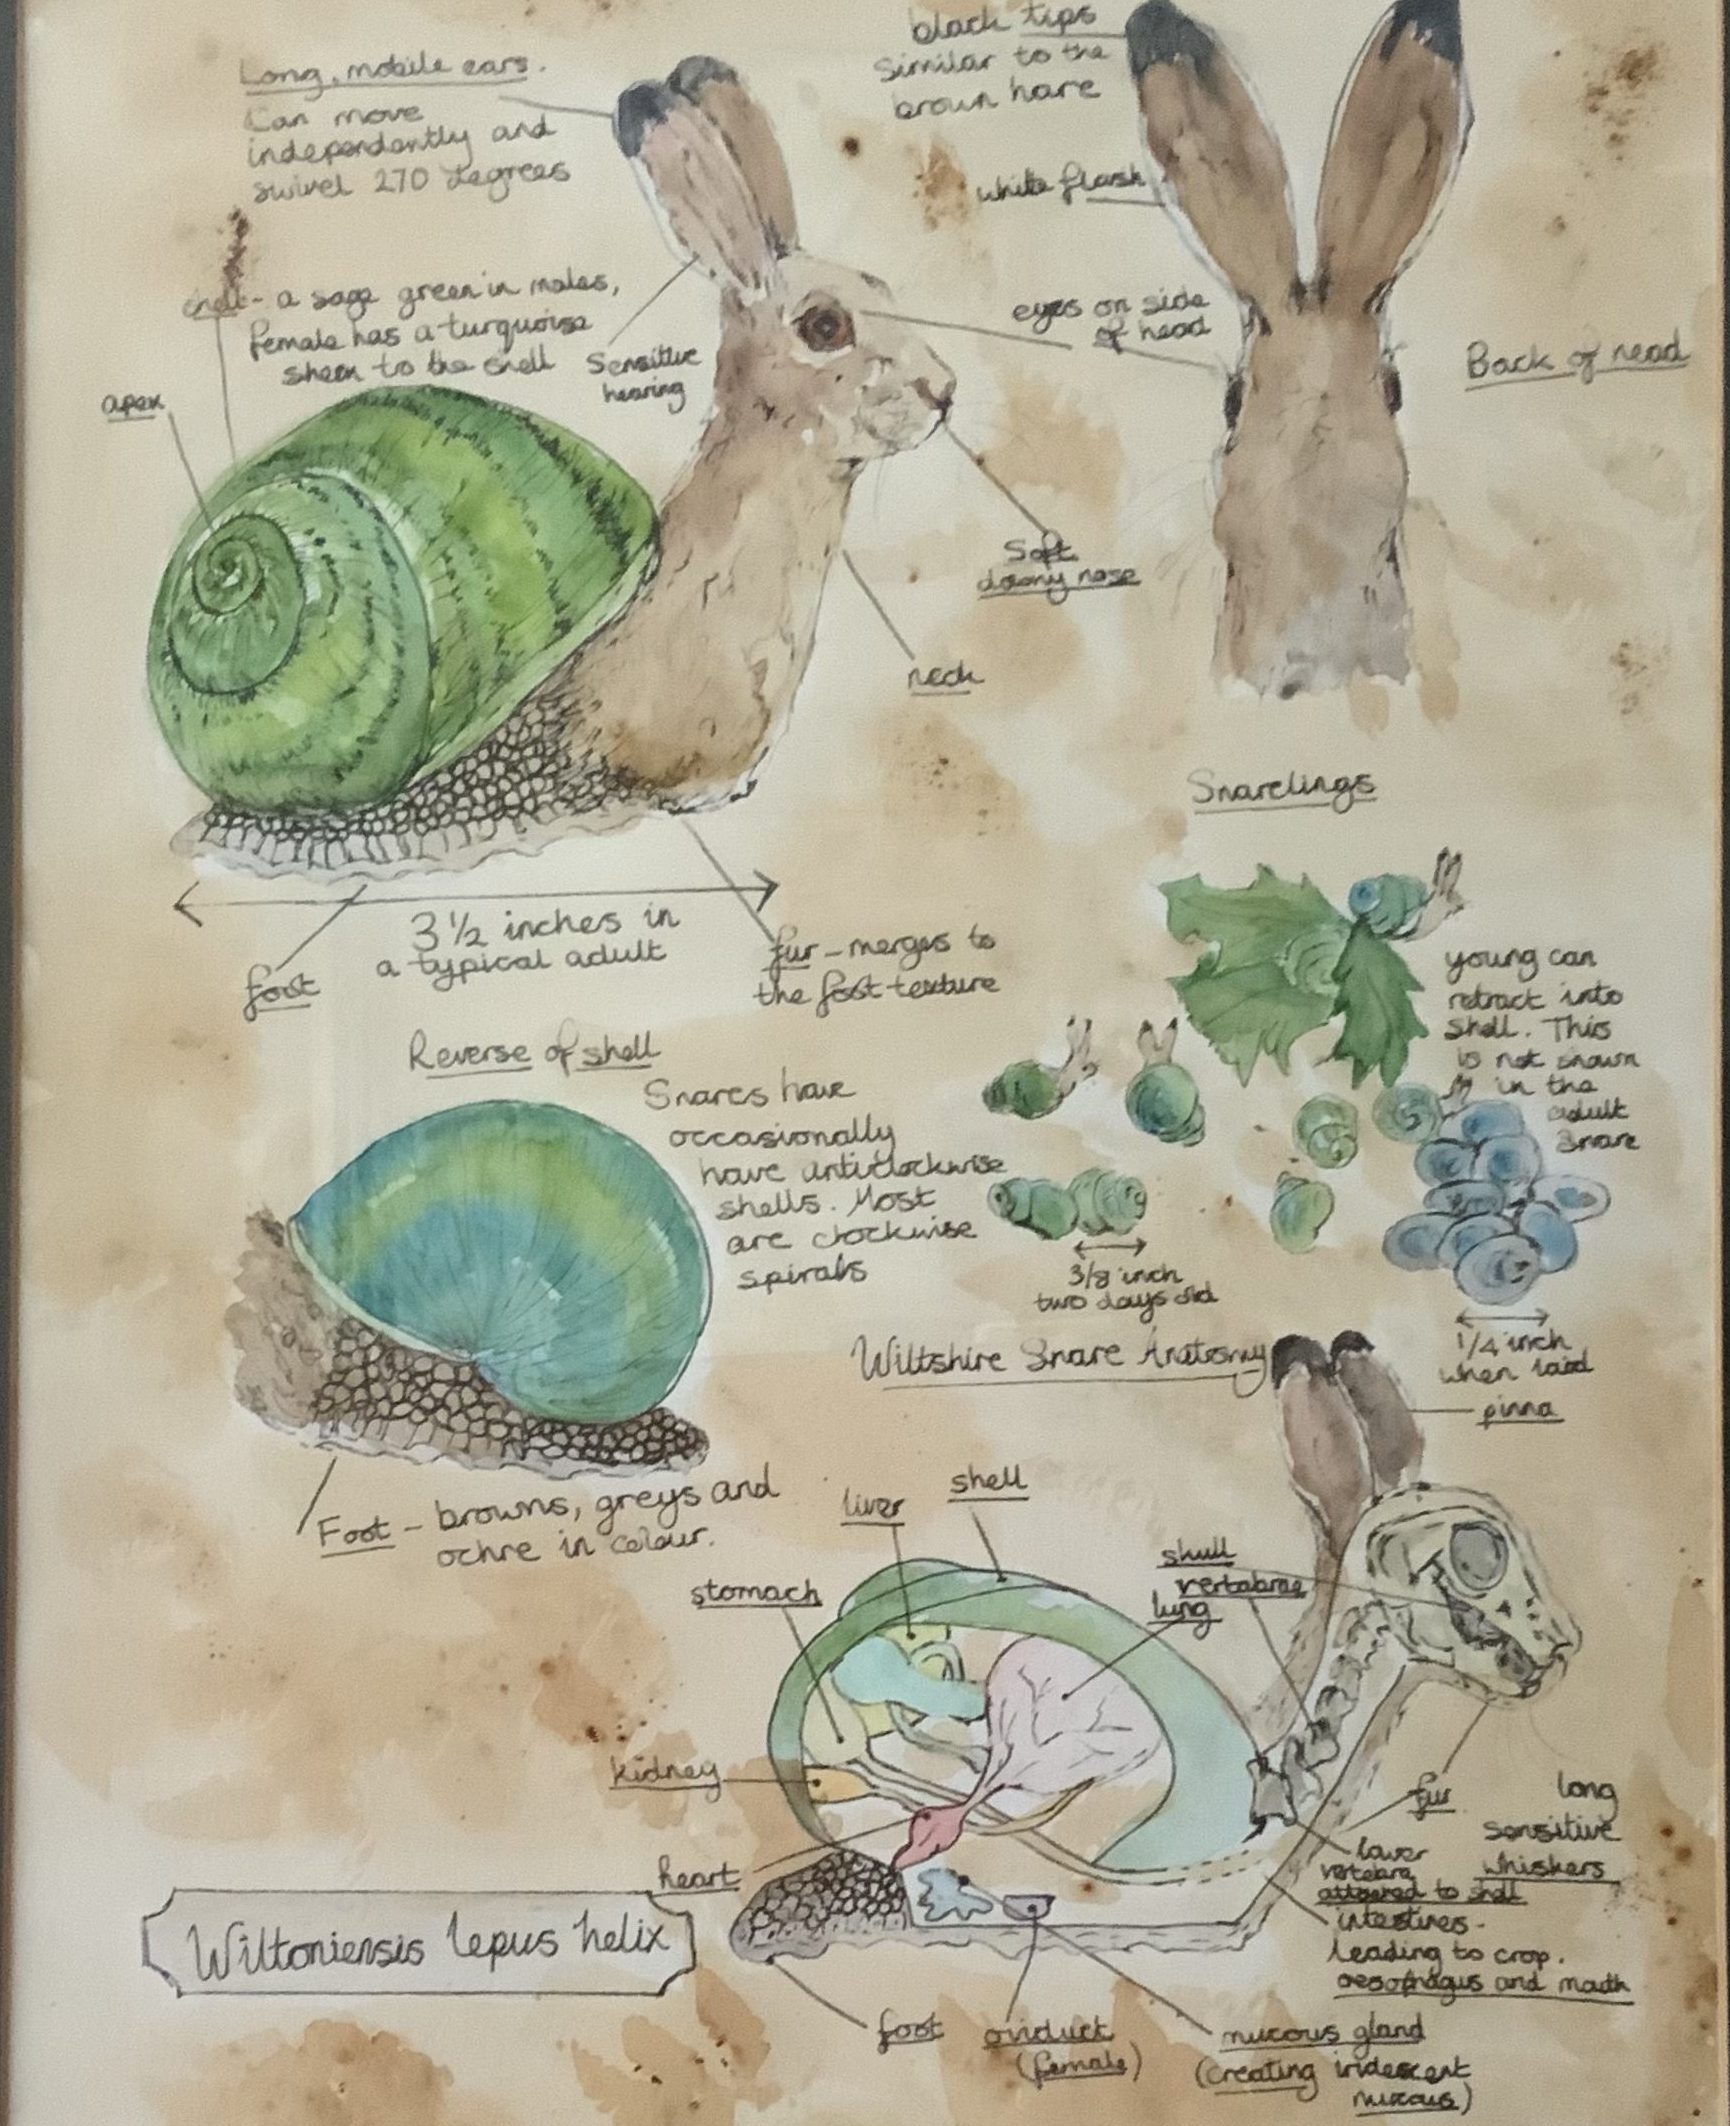 Long, mobile ears.
Can move
independently and
swivel 270 degrees
black tips
Similar to the
brown hare
white flash
shell - a sage green in males,
female has a turquoise
sheen to the shell
Sensitive
hearing
eyes on side
of head
Back of head
apex
Soft
downy nose
neck
3 1/2 inches in
a typical adult
foot
fur - merges to
the foot texture
Snarelings
young can
retract into
shell. This
is not shown
in the
adult
Snare
Reverse of shell
Snares have
occasionally
have anticlockwise
shells. Most
are clockwise
spirals
3/8 inch
two days old
1/4 inch
when laid
Foot - browns, greys and
ochre in colour.
Wiltshire Snare Anatomy
pinna
liver
shell
stomach
skull
vertabrae
lung
kidney
heart
fur
long
sensitive
whiskers
lower
vertebra
attached to shell
intestines -
leading to crop.
oesophagus and mouth
Wiltoniensis lepus helix
foot
oviduct
(female)
mucous gland
(creating iridescent
mucous)